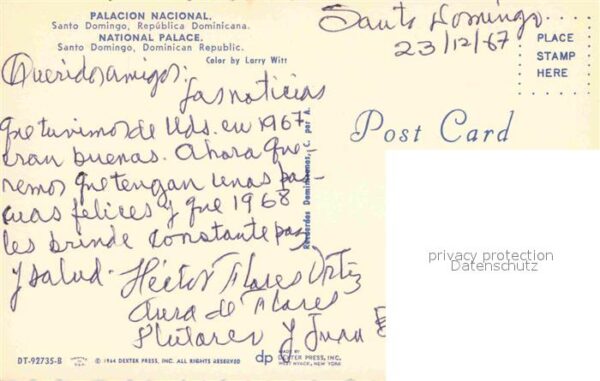 PALACION NACIONAL.
Santo Domingo, República Dominicana.
NATIONAL PALACE.
Santo Domingo, Dominican Republic.
Color by Larry Witt
Santo Domingo
23/12/67
PLACE
STAMP
HERE
Post Card
Queridos amigos:
Las noticias
que tuvimos de Uds. en 1967
eran buenas. Ahora que-
remos que tengan unas pas-
cuas felices y que 1968
les brinde constante paz
y salud.
Héctor Flores Ortiz
Aura de Flores
y Juan
Recuerdos Dominicanos, C. por A.
privacy protection
Datenschutz
DT-92735-B
© 1964 DEXTER PRESS, INC. ALL RIGHTS RESERVED
dp
MADE BY
DEXTER PRESS, INC.
WEST NYACK, NEW YORK